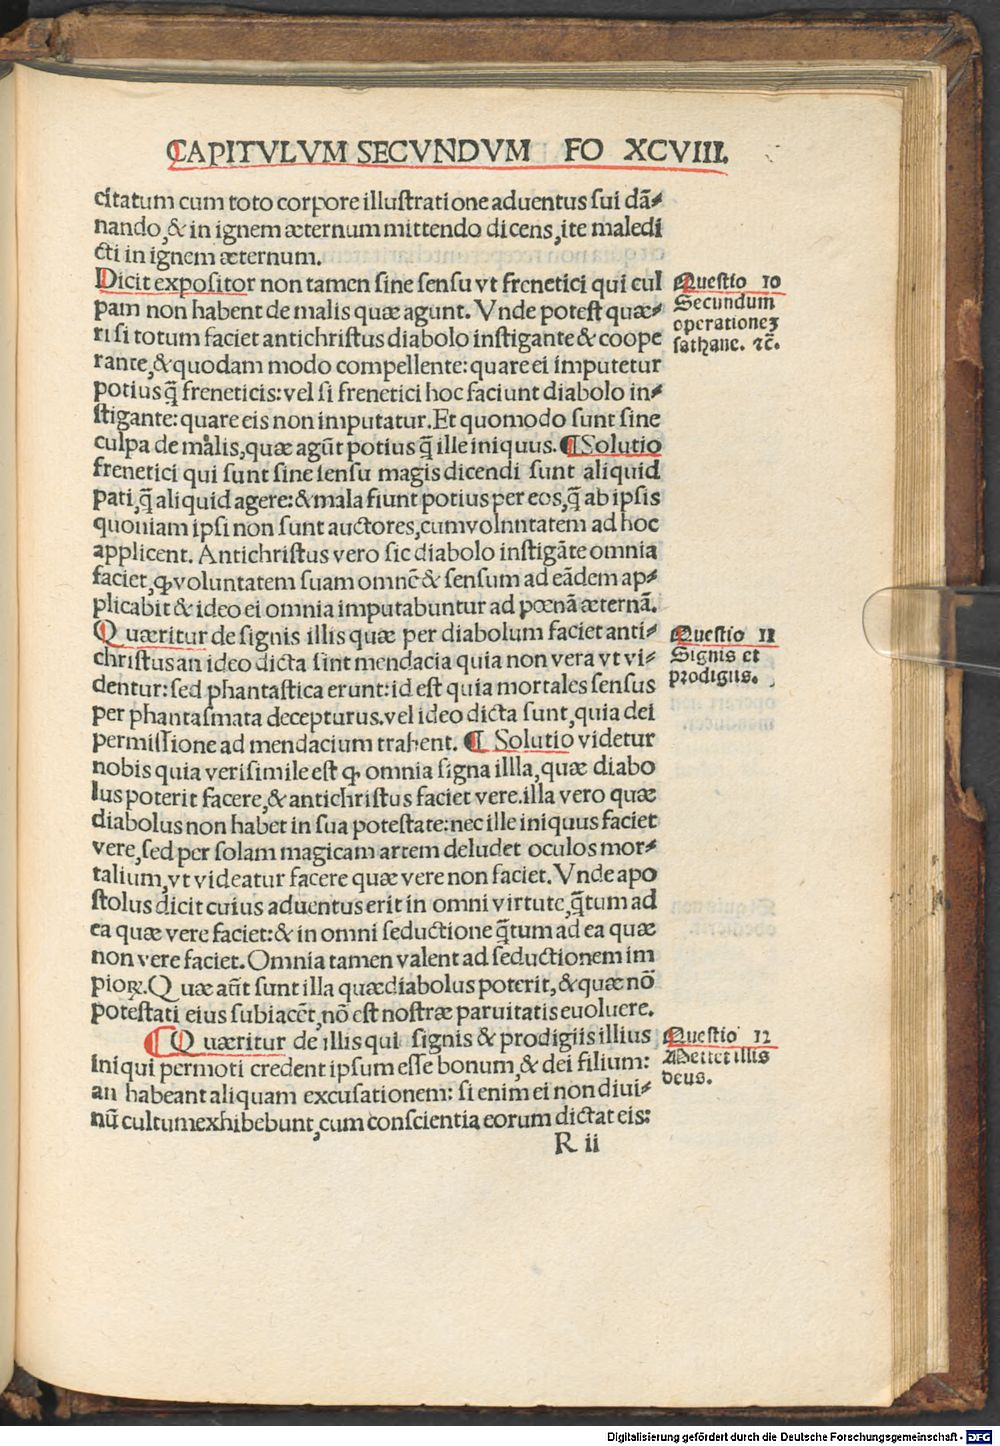 CAPITVLVM SECVNDVM FO XCVIII.
citatum cum toto corpore illustratione aduentus sui dā⸗
nando, & in ignem æternum mittendo dicens, ite maledi
cti in ignem æternum.
Dicit expositor non tamen sine sensu vt frenetici qui cul
pam non habent de malis quæ agunt. Vnde potest quæ⸗
ri si totum faciet antichristus diabolo instigante & coope
rante, & quodam modo compellente: quare ei imputetur
potius q̄ freneticis: vel si frenetici hoc faciunt diabolo in⸗
stigante: quare eis non imputatur. Et quomodo sunt sine
culpa de malis, quæ agūt potius q̄ ille iniquus. ¶ Solutio
frenetici qui sunt sine sensu magis dicendi sunt aliquid
pati, q̄ aliquid agere: & mala fiunt potius per eos, q̄ ab ipsis
quoniam ipsi non sunt auctores, cum volnntatem ad hoc
applicent. Antichristus vero sic diabolo instigāte omnia
faciet, ꝙ voluntatem suam omnē & sensum ad eādem ap⸗
plicabit & ideo ei omnia imputabuntur ad pœnā æternā.
Quæritur de signis illis quæ per diabolum faciet anti⸗
christus an ideo dicta sint mendacia quia non vera vt vi⸗
dentur: sed phantastica erunt: id est quia mortales sensus
per phantasmata decepturus. vel ideo dicta sunt, quia dei
permissione ad mendacium trahent. ¶ Solutio videtur
nobis quia verisimile est ꝙ omnia signa illla, quæ diabo
lus poterit facere, & antichristus faciet vere. illa vero quæ
diabolus non habet in sua potestate: nec ille iniquus faciet
vere, sed per solam magicam artem deludet oculos mor⸗
talium, vt videatur facere quæ vere non faciet. Vnde apo
stolus dicit cuius aduentus erit in omni virtute, q̄tum ad
ea quæ vere faciet: & in omni seductione q̄tum ad ea quæ
non vere faciet. Omnia tamen valent ad seductionem im
pioꝝ. Quæ aūt sunt illa quæ diabolus poterit, & quæ nō
potestati eius subiacēt, nō est nostræ paruitatis euoluere.
¶ Quæritur de illis qui signis & prodigiis illius
iniqui permoti credent ipsum esse bonum, & dei filium:
an habeant aliquam excusationem: si enim ei non diui⸗
nū cultum exhibebunt, cum conscientia eorum dictat eis:
R ii
Questio 10
Secundum
operationeʒ
sathane. ⁊c̄.
Questio 11
Signis et
prodigiis.
Questio 12
Mittet illis
deus.
Digitalisierung gefördert durch die Deutsche Forschungsgemeinschaft - DFG